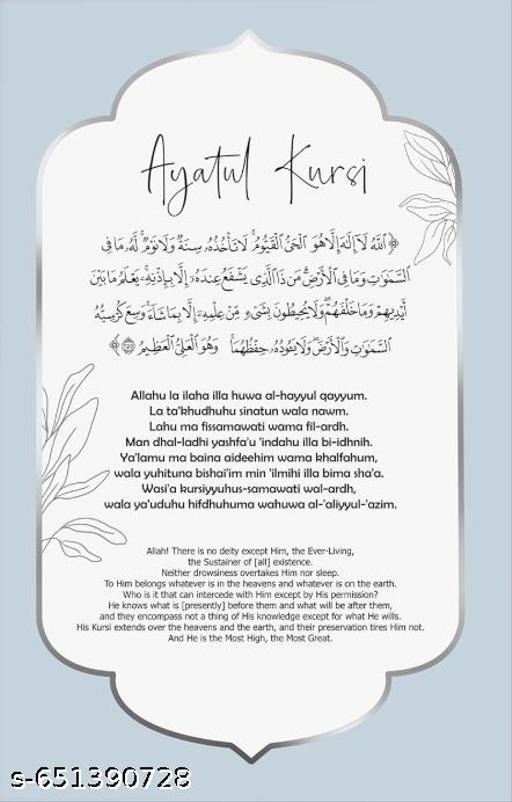 Ayatul Kursi
﴿ٱللَّهُ لَآ إِلَٰهَ إِلَّا هُوَ ٱلْحَىُّ ٱلْقَيُّومُ ۚ لَا تَأْخُذُهُۥ سِنَةٌ وَلَا نَوْمٌ ۚ لَّهُۥ مَا فِى
ٱلسَّمَٰوَٰتِ وَمَا فِى ٱلْأَرْضِ ۗ مَن ذَا ٱلَّذِى يَشْفَعُ عِندَهُۥٓ إِلَّا بِإِذْنِهِۦ ۚ يَعْلَمُ مَا بَيْنَ
أَيْدِيهِمْ وَمَا خَلْفَهُمْ ۖ وَلَا يُحِيطُونَ بِشَىْءٍ مِّنْ عِلْمِهِۦٓ إِلَّا بِمَا شَآءَ ۚ وَسِعَ كُرْسِيُّهُ
ٱلسَّمَٰوَٰتِ وَٱلْأَرْضَ ۖ وَلَا يَـُٔودُهُۥ حِفْظُهُمَا ۚ وَهُوَ ٱلْعَلِىُّ ٱلْعَظِيمُ ٢٥٥﴾
Allahu la ilaha illa huwa al-hayyul qayyum.
La ta'khudhuhu sinatun wala nawm.
Lahu ma fissamawati wama fil-ardh.
Man dhal-ladhi yashfa'u 'indahu illa bi-idhnih.
Ya'lamu ma baina aideehim wama khalfahum,
wala yuhituna bishai'im min 'ilmihi illa bima sha'a.
Wasi'a kursiyyuhus-samawati wal-ardh,
wala ya'uduhu hifdhuhuma wahuwa al-'aliyyul-'azim.
Allah! There is no deity except Him, the Ever-Living,
the Sustainer of [all] existence.
Neither drowsiness overtakes Him nor sleep.
To Him belongs whatever is in the heavens and whatever is on the earth.
Who is it that can intercede with Him except by His permission?
He knows what is [presently] before them and what will be after them,
and they encompass not a thing of His knowledge except for what He wills.
His Kursi extends over the heavens and the earth, and their preservation tires Him not.
And He is the Most High, the Most Great.
s-651390728